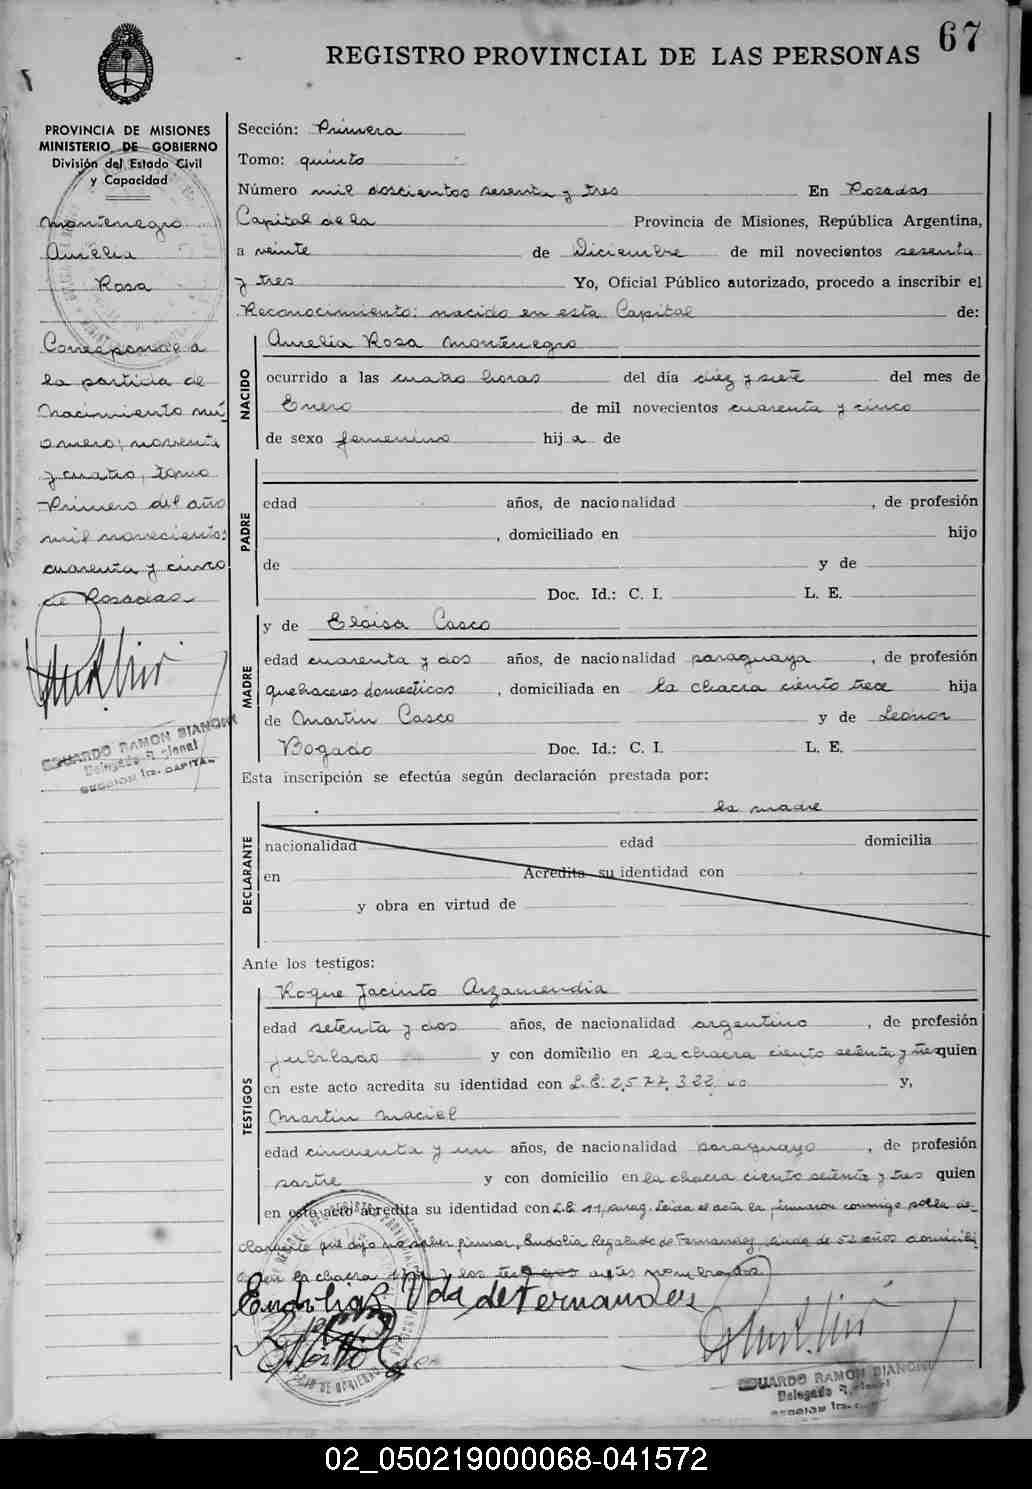 67
REGISTRO PROVINCIAL DE LAS PERSONAS
PROVINCIA DE MISIONES
MINISTERIO DE GOBIERNO
División del Estado Civil
y Capacidad
Montenegro
Aurelia
Rosa
Corresponde a
la partida de
Nacimiento nú
mero; noventa
y cuatro, tomo
Primero del año
mil novecientos
cuarenta y cinco
de Posadas
EDUARDO RAMON BIANCHI
Delegado
SECCION 1ra. CAPITAL
Sección: Primera
Tomo: quinto
Número mil doscientos sesenta y tres En Posadas
Capital de la Provincia de Misiones, República Argentina,
a veinte de Diciembre de mil novecientos sesenta
y tres Yo, Oficial Público autorizado, procedo a inscribir el
Reconocimiento: nacido en esta Capital de:
NACIDO
Aurelia Rosa Montenegro
ocurrido a las cuatro horas del día diez y siete del mes de
Enero de mil novecientos cuarenta y cinco
de sexo femenino hij a de
PADRE
edad años, de nacionalidad , de profesión
, domiciliado en hijo
de y de
Doc. Id.: C. I. L. E.
MADRE
y de Eloisa Casco
edad cuarenta y dos años, de nacionalidad paraguaya , de profesión
quehaceres domesticos , domiciliada en la chacra ciento trece hija
de Martin Casco y de Leonor
Bogado Doc. Id.: C. I. L. E.
Esta inscripción se efectúa según declaración prestada por:
la madre
DECLARANTE
nacionalidad edad domicilia
en Acredita su identidad con
y obra en virtud de
Ante los testigos:
TESTIGOS
Roque Jacinto Arzamendia
edad setenta y dos años, de nacionalidad argentino , de profesión
jubilado y con domicilio en la chacra ciento setenta y tres quien
en este acto acredita su identidad con L.E: 2,577,322 y,
Martin Maciel
edad cincuenta y un años, de nacionalidad paraguayo , de profesión
sastre y con domicilio en la chacra ciento setenta y tres quien
en este acto acredita su identidad con Leida el acta la firmaron conmigo por la de
clarante que dijo no saber firmar, Eudolia Regalado de Fernandez, viuda de 52 años domicili
la chacra y los testigos antes nombrados
Eudolia R Vda de Fernandez
EDUARDO RAMON BIANCHI
Delegado
SECCION 1ra.
02_050219000068-041572